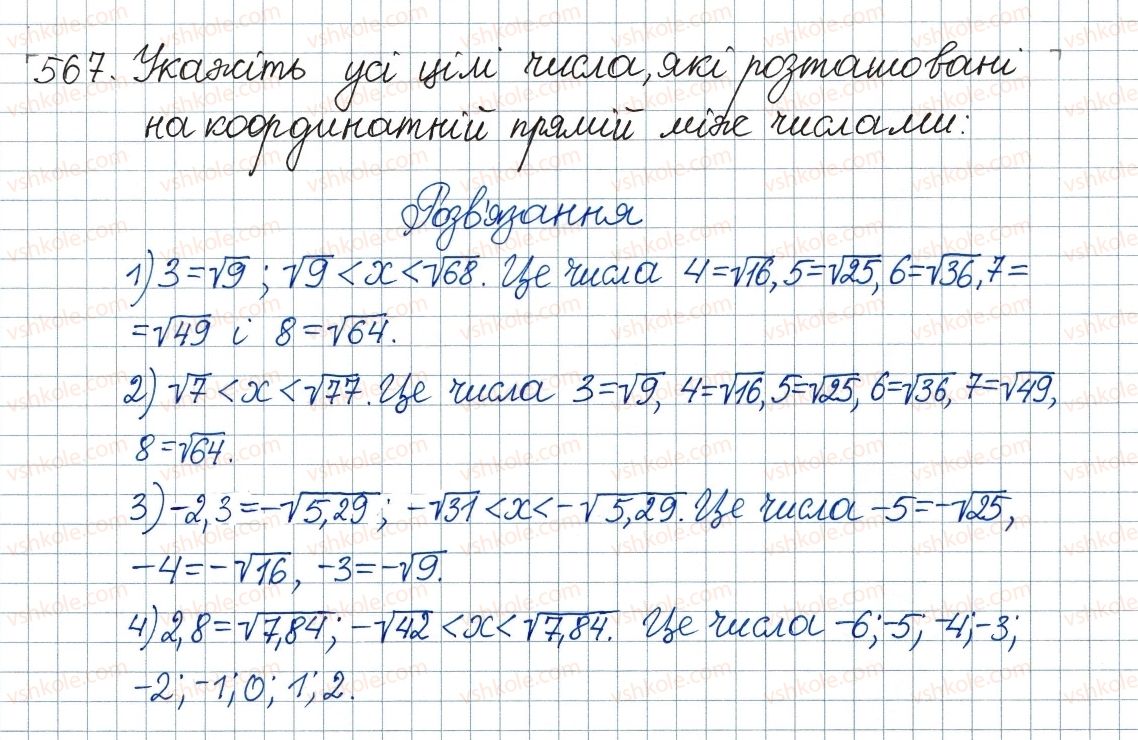 567. Укажіть усі цілі числа, які розташовані
на координатній прямій між числами:
Розв'язання
1) 3 = √9 ; √9 < x < √68. Це числа 4 = √16, 5 = √25, 6 = √36, 7 =
= √49 і 8 = √64.
2) √7 < x < √77. Це числа 3 = √9, 4 = √16, 5 = √25, 6 = √36, 7 = √49,
8 = √64.
3) -2,3 = -√5,29 ; -√31 < x < -√5,29. Це числа -5 = -√25,
-4 = -√16, -3 = -√9.
4) 2,8 = √7,84 ; -√42 < x < √7,84. Це числа -6; -5; -4; -3;
-2; -1; 0; 1; 2.